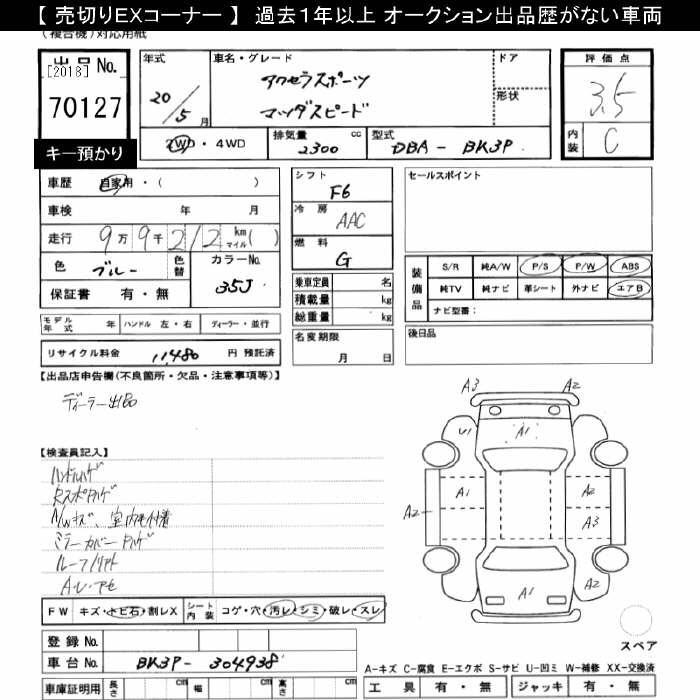 【 売切りEXコーナー 】 過去1年以上 オークション出品歴がない車両
(複合機)対応用紙
出品No.
[2018]
70127
キー預かり
年式
20/5月
車名・グレード
アクセラスポーツ
マツダスピード
ドア
形状
評価点
3.5
内装
C
2WD・4WD
排気量
2300 cc
型式
DBA - BK3P
車歴 自家用・( )
車検 年 月
走行 9万9千212 km マイル( )
色 ブルー 色替 カラーNo.
35J
保証書 有・無
シフト
F6
冷房
AAC
燃料
G
乗車定員 名
積載量 kg
総重量 kg
セールスポイント
装備品
S/R 純A/W P/S P/W ABS
純TV 純ナビ 革シート 外ナビ エアB
ナビ型番:
モデル年式 年 ハンドル 左・右 ディーラー・並行
名変期限
月 日
後日品
リサイクル料金 11,480 円 預託済
【出品店申告欄(不良箇所・欠品・注意事項等)】
ディーラー出品
【検査員記入】
ハンドルハゲ
A/Wキズ、室内毛付着
ミラーカバー
A・L・アモ
A3 A2
U1 A1
A1 A2
A2 A3
A1 A2
FW キズ・トビ石・割レX シート内装 コゲ・穴・汚レ・シミ・破レ・スレ
登録No.
車台No. BK3P - 304938
スペア
A-キズ C-腐食 E-エクボ S-サビ U-凹ミ W-補修 XX-交換済
車庫証明用 長さ cm 幅 cm 高さ cm
工具 有・無 ジャッキ 有・無